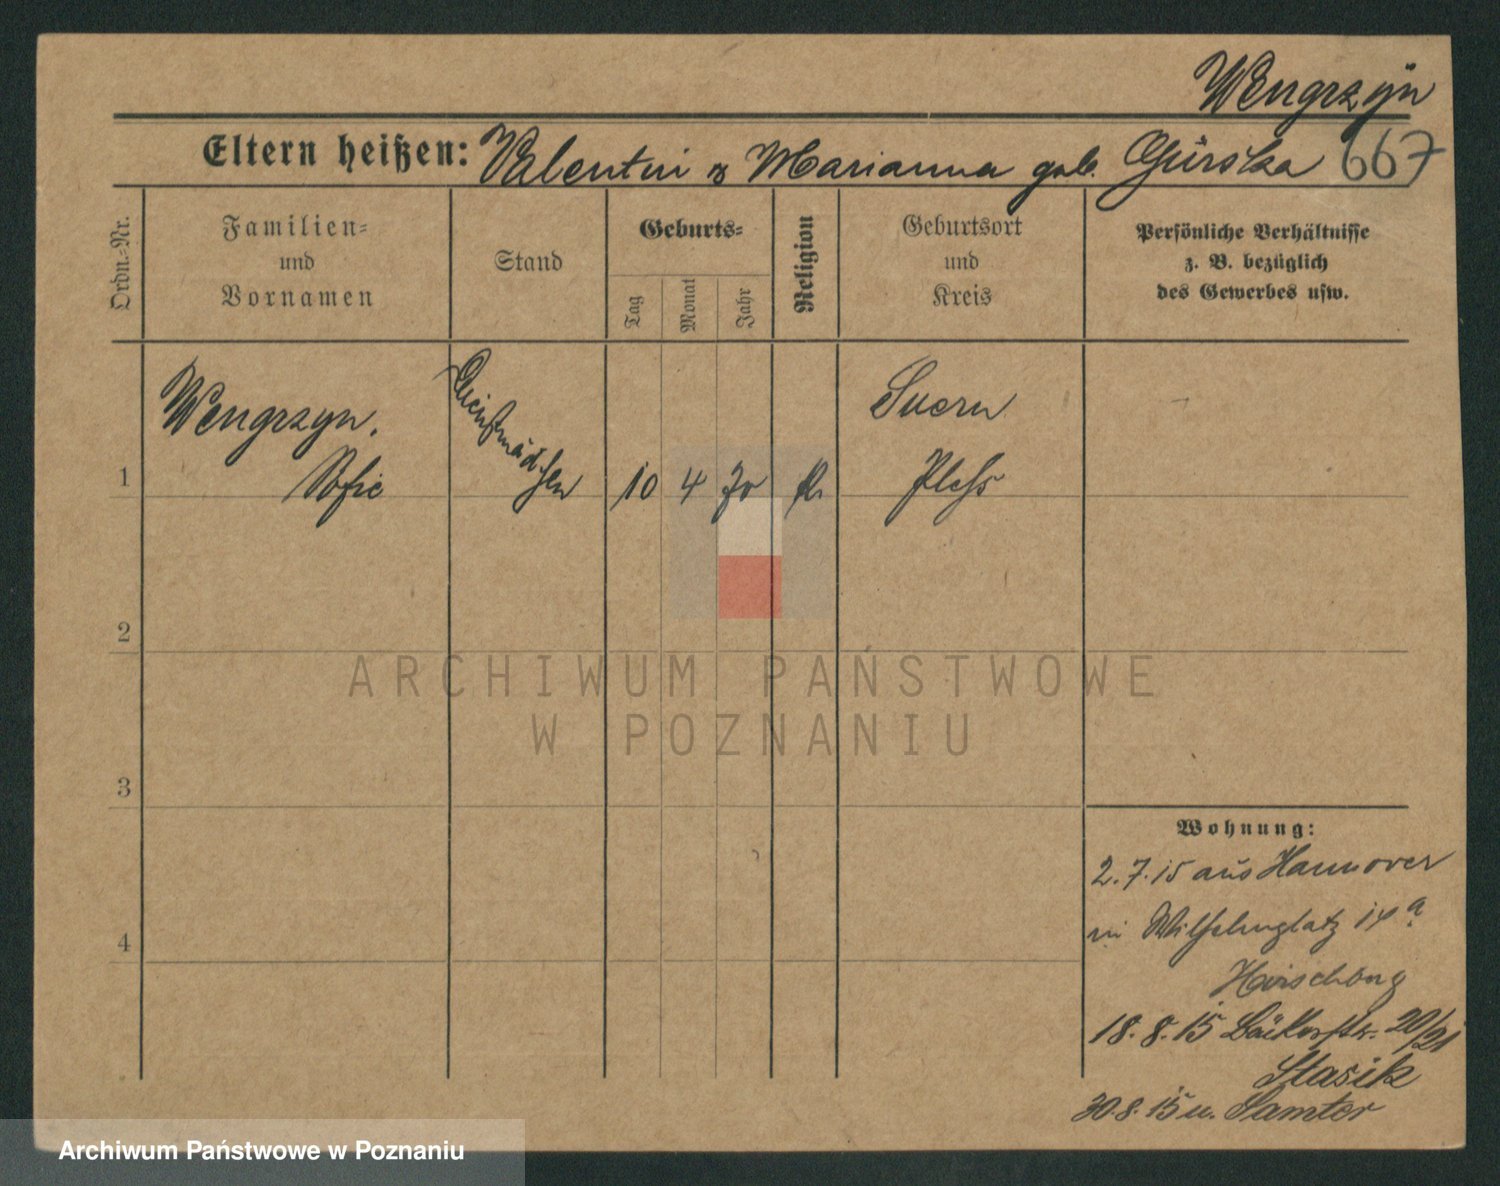 Wengrzÿn
Eltern heißen: Valentin & Marianna geb. Gúrska 667
Ordn.-Nr.
Familien-
und
Vornamen
Stand
Geburts-
Tag
Monat
Jahr
Religion
Geburtsort
und
Kreis
Persönliche Verhältnisse
z. B. bezüglich
des Gewerbes usw.
Wengrzyn.
Sofie
Dienstmädchen
1
10 4 70 k.
Pleß
2
3
4
Wohnung:
2.7.15 aus Hannover
in Wilhelmplatz 14a
18.8.15 Bäckerstr. 20/21
Stasik
30.8.15 n. Samter
ARCHIWUM PAŃSTWOWE
W POZNANIU
Archiwum Państwowe w Poznaniu